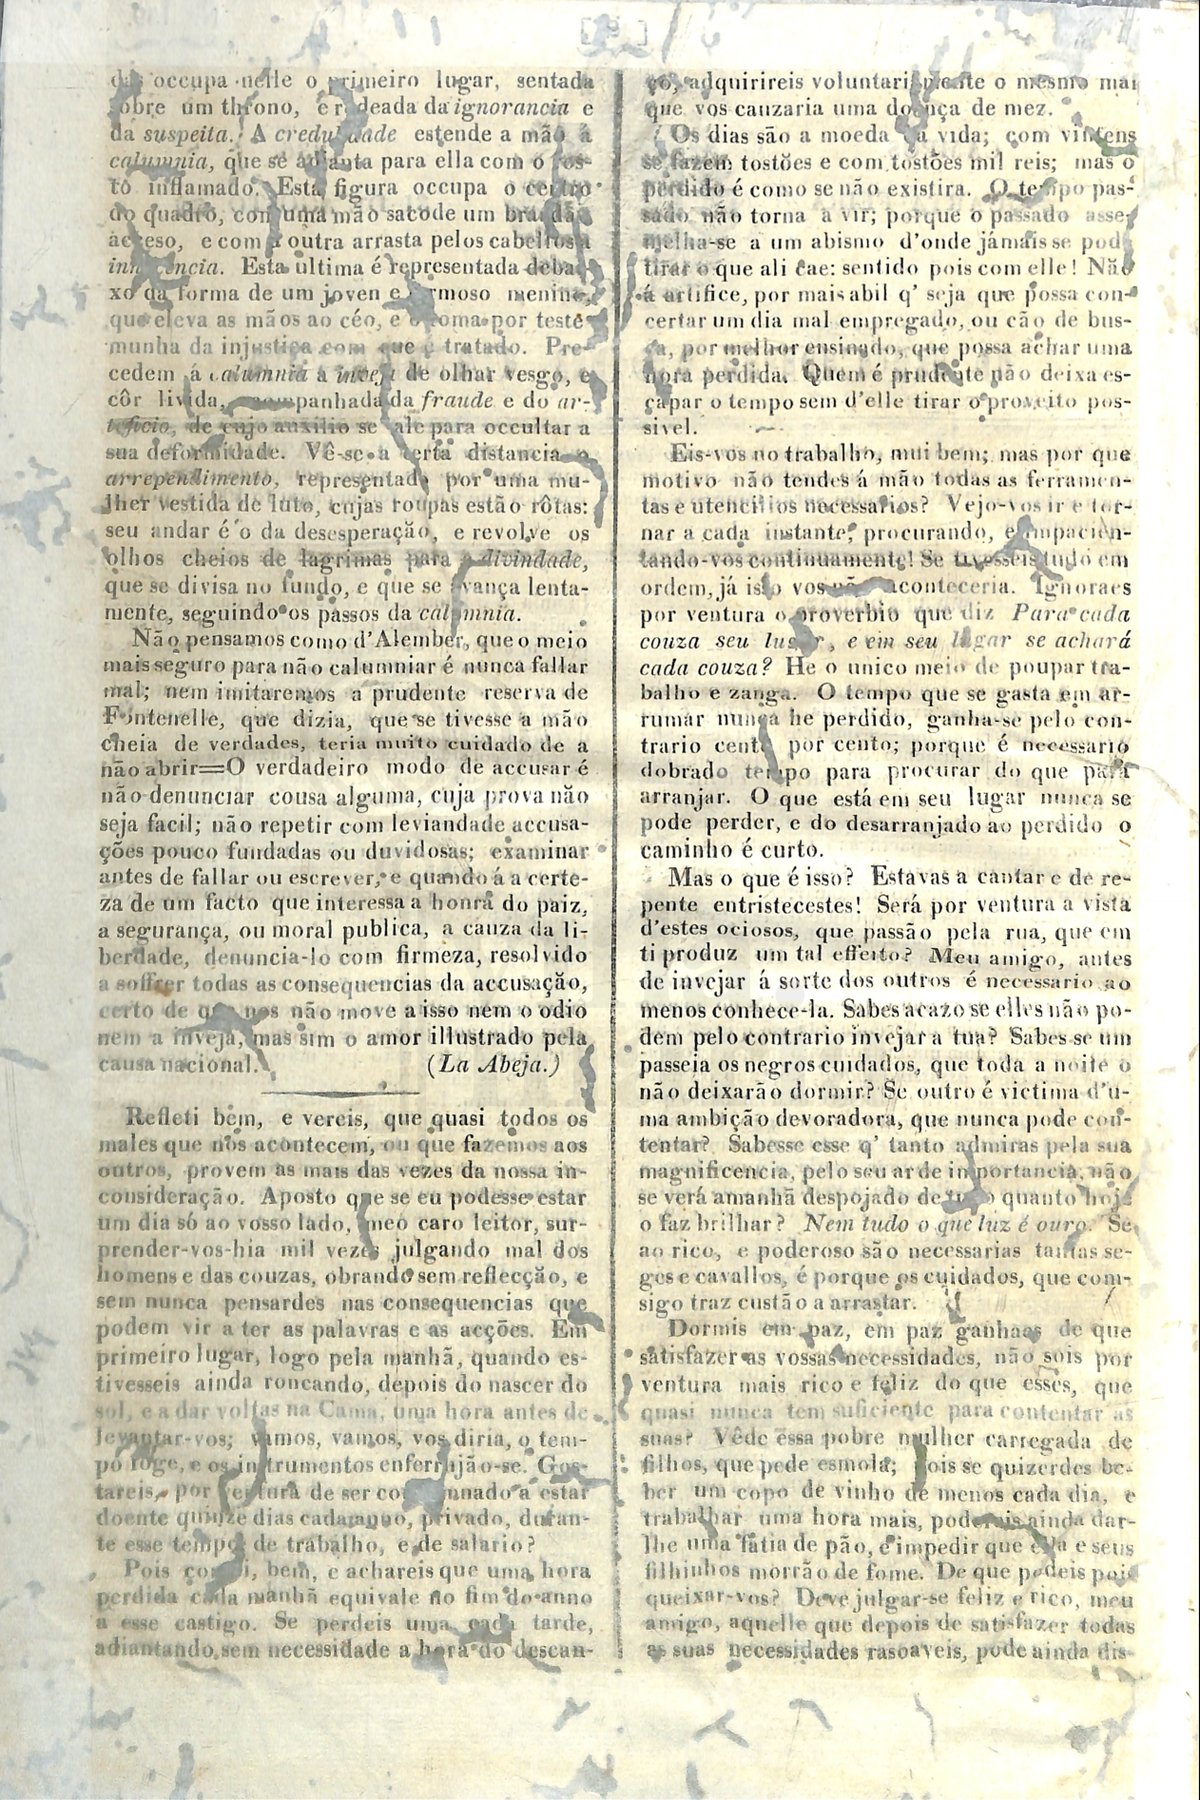 das occupa nelle o primeiro lugar, sentada
sobre um throno, e rodeada da ignorancia e
da suspeita. A credulidade estende a mão á
calumnia, que se adianta para ella com o ros-
to inflamado. Esta figura occupa o centro
do quadro, com uma mão sacode um brandão
acceso, e com a outra arrasta pelos cabellos a
innocencia. Esta ultima é representada debai-
xo da forma de um joven e formoso menino,
que eleva as mãos ao céo, e o toma por teste-
munha da injustiça com que é tratado. Pre-
cedem á calumnia a inveja de olhar vesgo, e
côr livida, acompanhada da fraude e do ar-
teficio, de cujo auxilio se vale para occultar a
sua deformidade. Vê-se a certa distancia o
arrependimento, representado por uma mu-
lher vestida de luto, cujas roupas estão rôtas:
seu andar é o da desesperação, e revolve os
olhos cheios de lagrimas para a divindade,
que se divisa no fundo, e que se avança lenta-
mente, seguindo os passos da calumnia.
Não pensamos como d'Alember, que o meio
mais seguro para não calumniar é nunca fallar
mal; nem imitaremos a prudente reserva de
Fontenelle, que dizia, que se tivesse a mão
cheia de verdades, teria muito cuidado de a
não abrir=O verdadeiro modo de accusar é
não denunciar cousa alguma, cuja prova não
seja facil; não repetir com leviandade accusa-
ções pouco fundadas ou duvidosas; examinar
antes de fallar ou escrever, e quando á a certe-
za de um facto que interessa a honra do paiz,
a segurança, ou moral publica, a cauza da li-
berdade, denuncia-lo com firmeza, resolvido
a soffrer todas as consequencias da accusação,
certo de que nos não move a isso nem o odio
nem a inveja, mas sim o amor illustrado pela
causa nacional. (La Abeja.)
Refleti bem, e vereis, que quasi todos os
males que nos acontecem, ou que fazemos aos
outros, provem as mais das vezes da nossa in-
consideração. Aposto que se eu podesse estar
um dia só ao vosso lado, meo caro leitor, sur-
prender-vos-hia mil vezes julgando mal dos
homens e das couzas, obrando sem reflecção, e
sem nunca pensardes nas consequencias que
podem vir a ter as palavras e as acções. Em
primeiro lugar, logo pela manhã, quando es-
tivesseis ainda roncando, depois do nascer do
sol, e a dar voltas na Cama, uma hora antes de
levantar-vos; vamos, vamos, vos diria, o tem-
po foge, e os instrumentos enferrujão-se. Gos-
tareis, por ventura de ser condemnado a estar
doente quinze dias cada anno, privado, duran-
te esse tempo de trabalho, e de salario?
Pois contai, bem, e achareis que uma hora
perdida cada manhã equivale no fim do anno
a esse castigo. Se perdeis uma cada tarde,
adiantando sem necessidade a hora do descan-
ço, adquirireis voluntariamente o mesmo mal
que vos cauzaria uma doença de mez.
Os dias são a moeda da vida; com vintens
se fazem tostões e com tostões mil reis; mas o
perdido é como se não existira. O tempo pas-
sado não torna a vir; porque o passado asse-
melha-se a um abismo d'onde jámais se pode
tirar o que ali cae: sentido pois com elle! Não
á artifice, por mais abil q' seja que possa con-
certar um dia mal empregado, ou cão de bus-
ca, por melhor ensinado, que possa achar uma
hora perdida. Quem é prudente não deixa es-
capar o tempo sem d'elle tirar o proveito pos-
sivel.
Eis-vos no trabalho, mui bem; mas por que
motivo não tendes á mão todas as ferramen-
tas e utencilios necessarios? Vejo-vos ir e tor-
nar a cada instante, procurando, e impacien-
tando-vos continuamente! Se tivesseis tudo em
ordem, já isto vos não aconteceria. Ignoraes
por ventura o proverbio que diz Para cada
couza seu lugar, e em seu lugar se achará
cada couza? He o unico meio de poupar tra-
balho e zanga. O tempo que se gasta em ar-
rumar nunca he perdido, ganha-se pelo con-
trario cento por cento; porque é necessario
dobrado tempo para procurar do que para
arranjar. O que está em seu lugar nunca se
pode perder, e do desarranjado ao perdido o
caminho é curto.
Mas o que é isso? Estavas a cantar e de re-
pente entristecestes! Será por ventura a vista
d'estes ociosos, que passão pela rua, que em
ti produz um tal effeito? Meu amigo, antes
de invejar á sorte dos outros é necessario ao
menos conhece-la. Sabes acazo se elles não po-
dem pelo contrario invejar a tua? Sabes se um
passeia os negros cuidados, que toda a noite o
não deixarão dormir? Se outro é victima d'u-
ma ambição devoradora, que nunca pode con-
tentar? Sabesse esse q' tanto admiras pela sua
magnificencia, pelo seu ar de importancia, não
se verá amanhã despojado de tudo quanto hoje
o faz brilhar? Nem tudo o que luz é ouro. Se
ao rico, e poderoso são necessarias tantas se-
ges e cavallos, é porque os cuidados, que com-
sigo traz custão a arrastar.
Dormis em paz, em paz ganhaes de que
satisfazer as vossas necessidades, não sois por
ventura mais rico e feliz do que esses, que
quasi nunca tem suficiente para contentar as
suas? Vêde essa pobre mulher carregada de
filhos, que pede esmola; pois se quizerdes be-
ber um copo de vinho de menos cada dia, e
trabalhar uma hora mais, podereis ainda dar-
lhe uma fatia de pão, e impedir que ella e seus
filhinhos morrão de fome. De que podeis pois
queixar-vos? Deve julgar-se feliz e rico, meu
amigo, aquelle que depois de satisfazer todas
as suas necessidades rasoaveis, pode ainda dis-